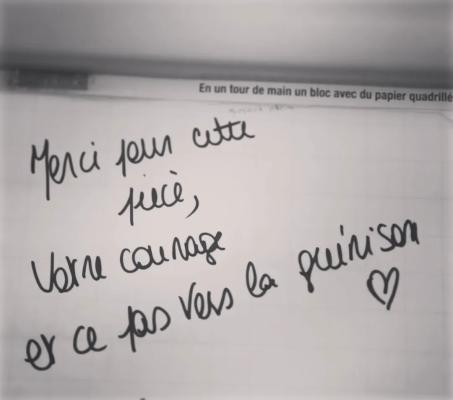 En un tour de main un bloc avec du papier quadrillé
Merci pour cette
pièce,
Votre courage
et ce pas vers la guérison
♡